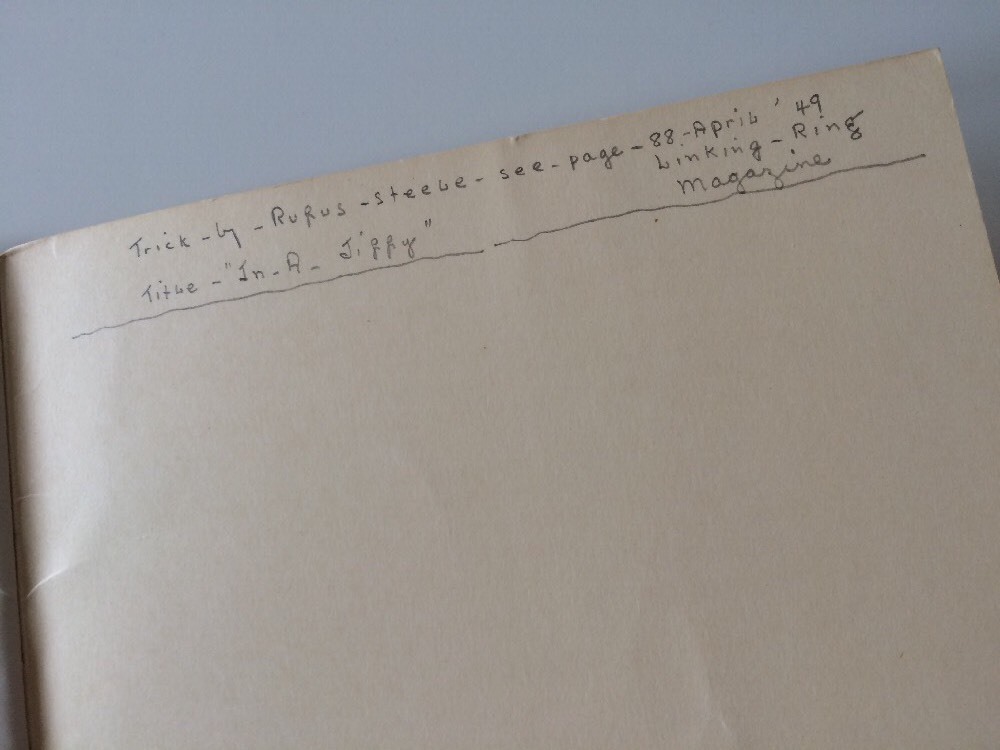 Trick - by - Rufus - Steele - see - page - 88 - April '49
Linking - Ring
Magazine
Title - "In - A - Jiffy"